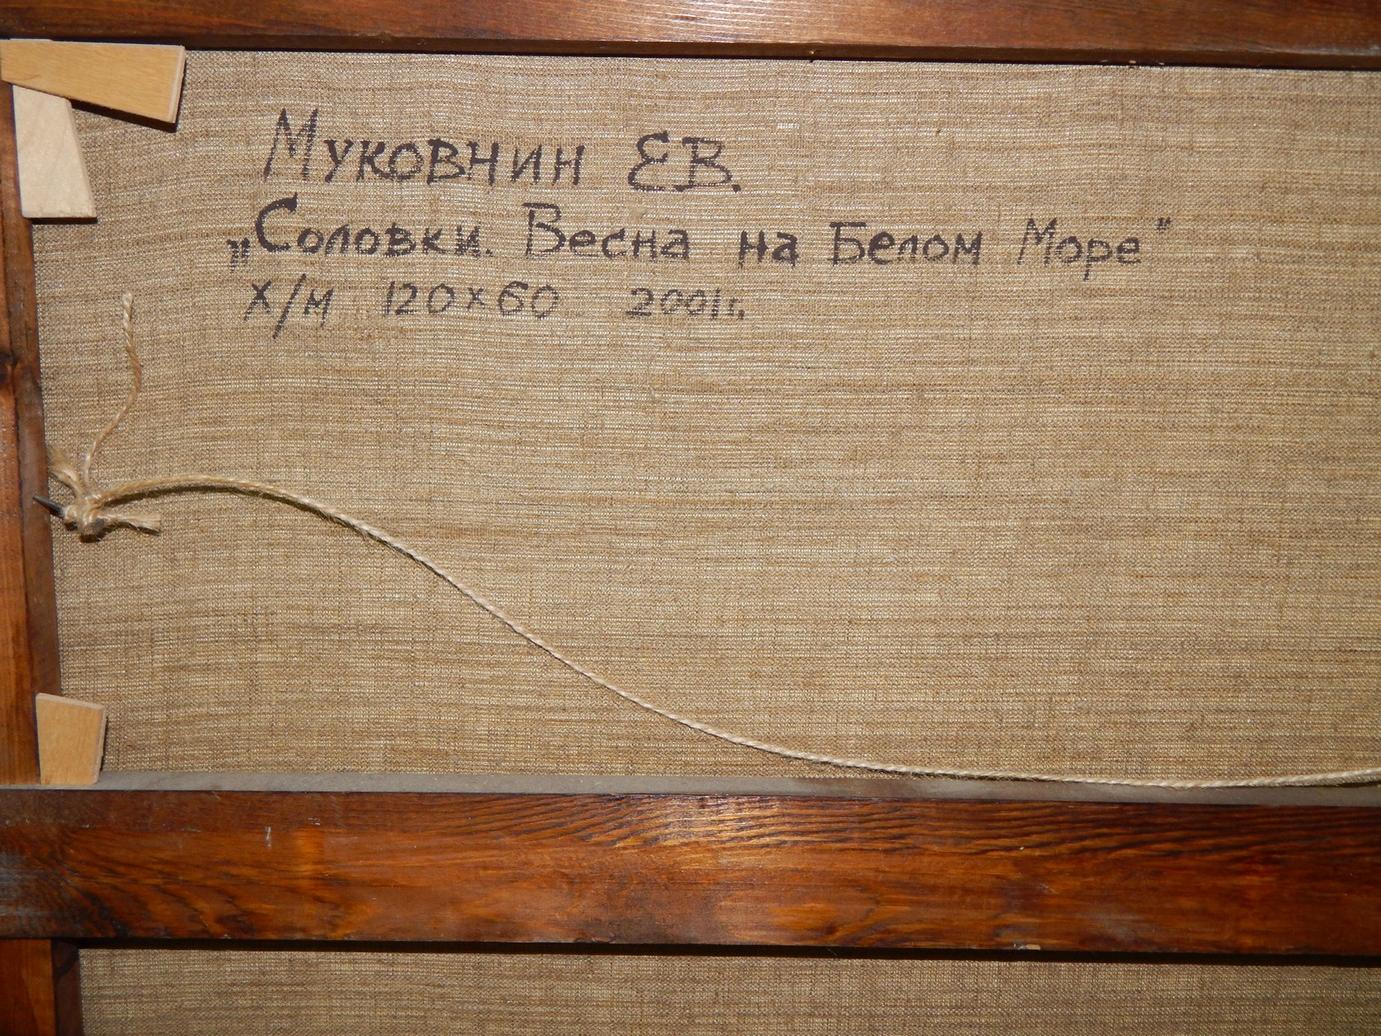 Муковнин Е.В.
„Соловки. Весна на Белом Море"
Х/м 120×60 2001г.